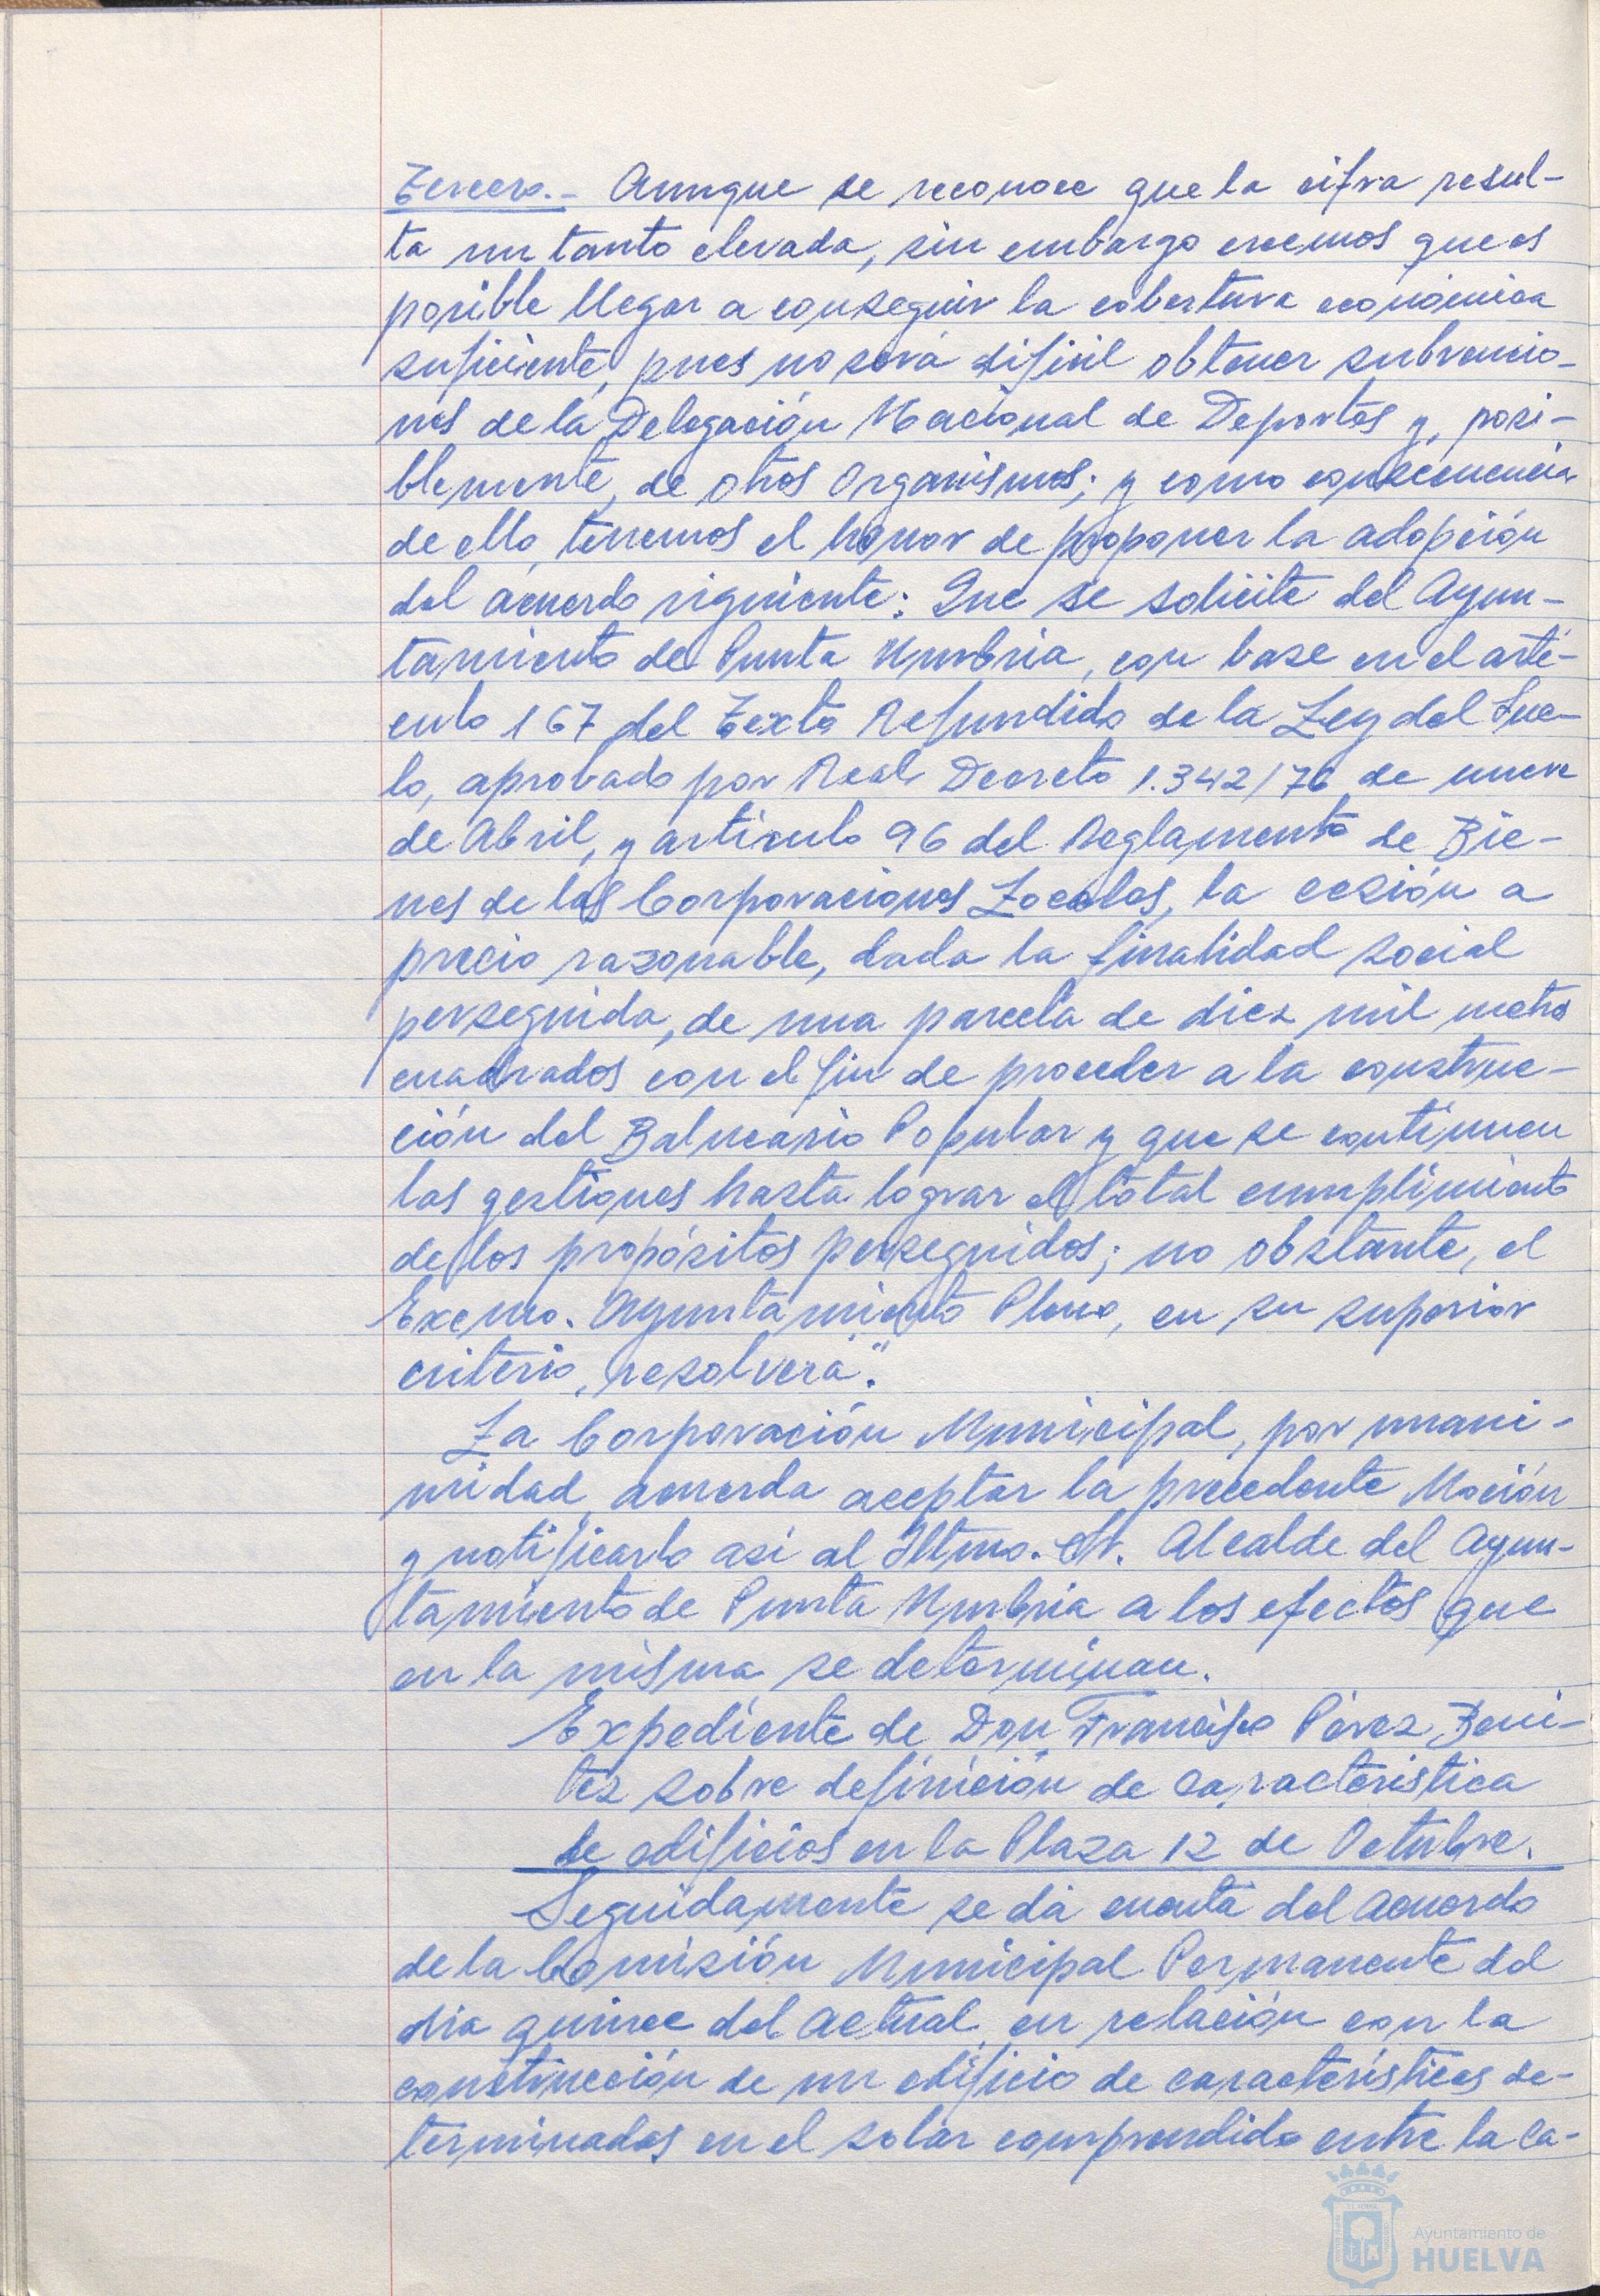 Tercero.- Aunque se reconoce que la cifra resul-
ta un tanto elevada, sin embargo creemos que es
posible llegar a conseguir la cobertura económica
suficiente, pues no será difícil obtener subvencio-
nes de la Delegación Nacional de Deportes y, posi-
blemente, de otros Organismos; y como consecuencia
de ello, tenemos el honor de proponer la adopción
del acuerdo siguiente: Que se solicite del Ayun-
tamiento de Punta Umbría, con base en el artí-
culo 167 del Texto Refundido de la Ley del Sue-
lo, aprobado por Real Decreto 1.342/76 de nueve
de Abril, y artículo 96 del Reglamento de Bie-
nes de las Corporaciones Locales, la cesión a
precio razonable, dada la finalidad social
perseguida, de una parcela de diez mil metros
cuadrados con el fin de proceder a la construc-
ción del Balneario Popular y que se continuen
las gestiones hasta lograr el total cumplimiento
de los propósitos perseguidos; no obstante, el
Excmo. Ayuntamiento Pleno, en su superior
criterio, resolverá".
La Corporación Municipal, por unani-
midad, acuerda aceptar la precedente Moción
y notificarlo así al Iltmo. Sr. Alcalde del Ayun-
tamiento de Punta Umbría a los efectos que
en la misma se determinan.
Expediente de Don Francisco Pérez Bení-
tez sobre definición de característica
de edificios en la Plaza 12 de Octubre.
Seguidamente se dá cuenta del acuerdo
de la Comisión Municipal Permanente del
día quince del actual, en relación con la
construcción de un edificio de características de-
terminadas en el solar comprendido entre la ca-
Ayuntamiento de
HUELVA